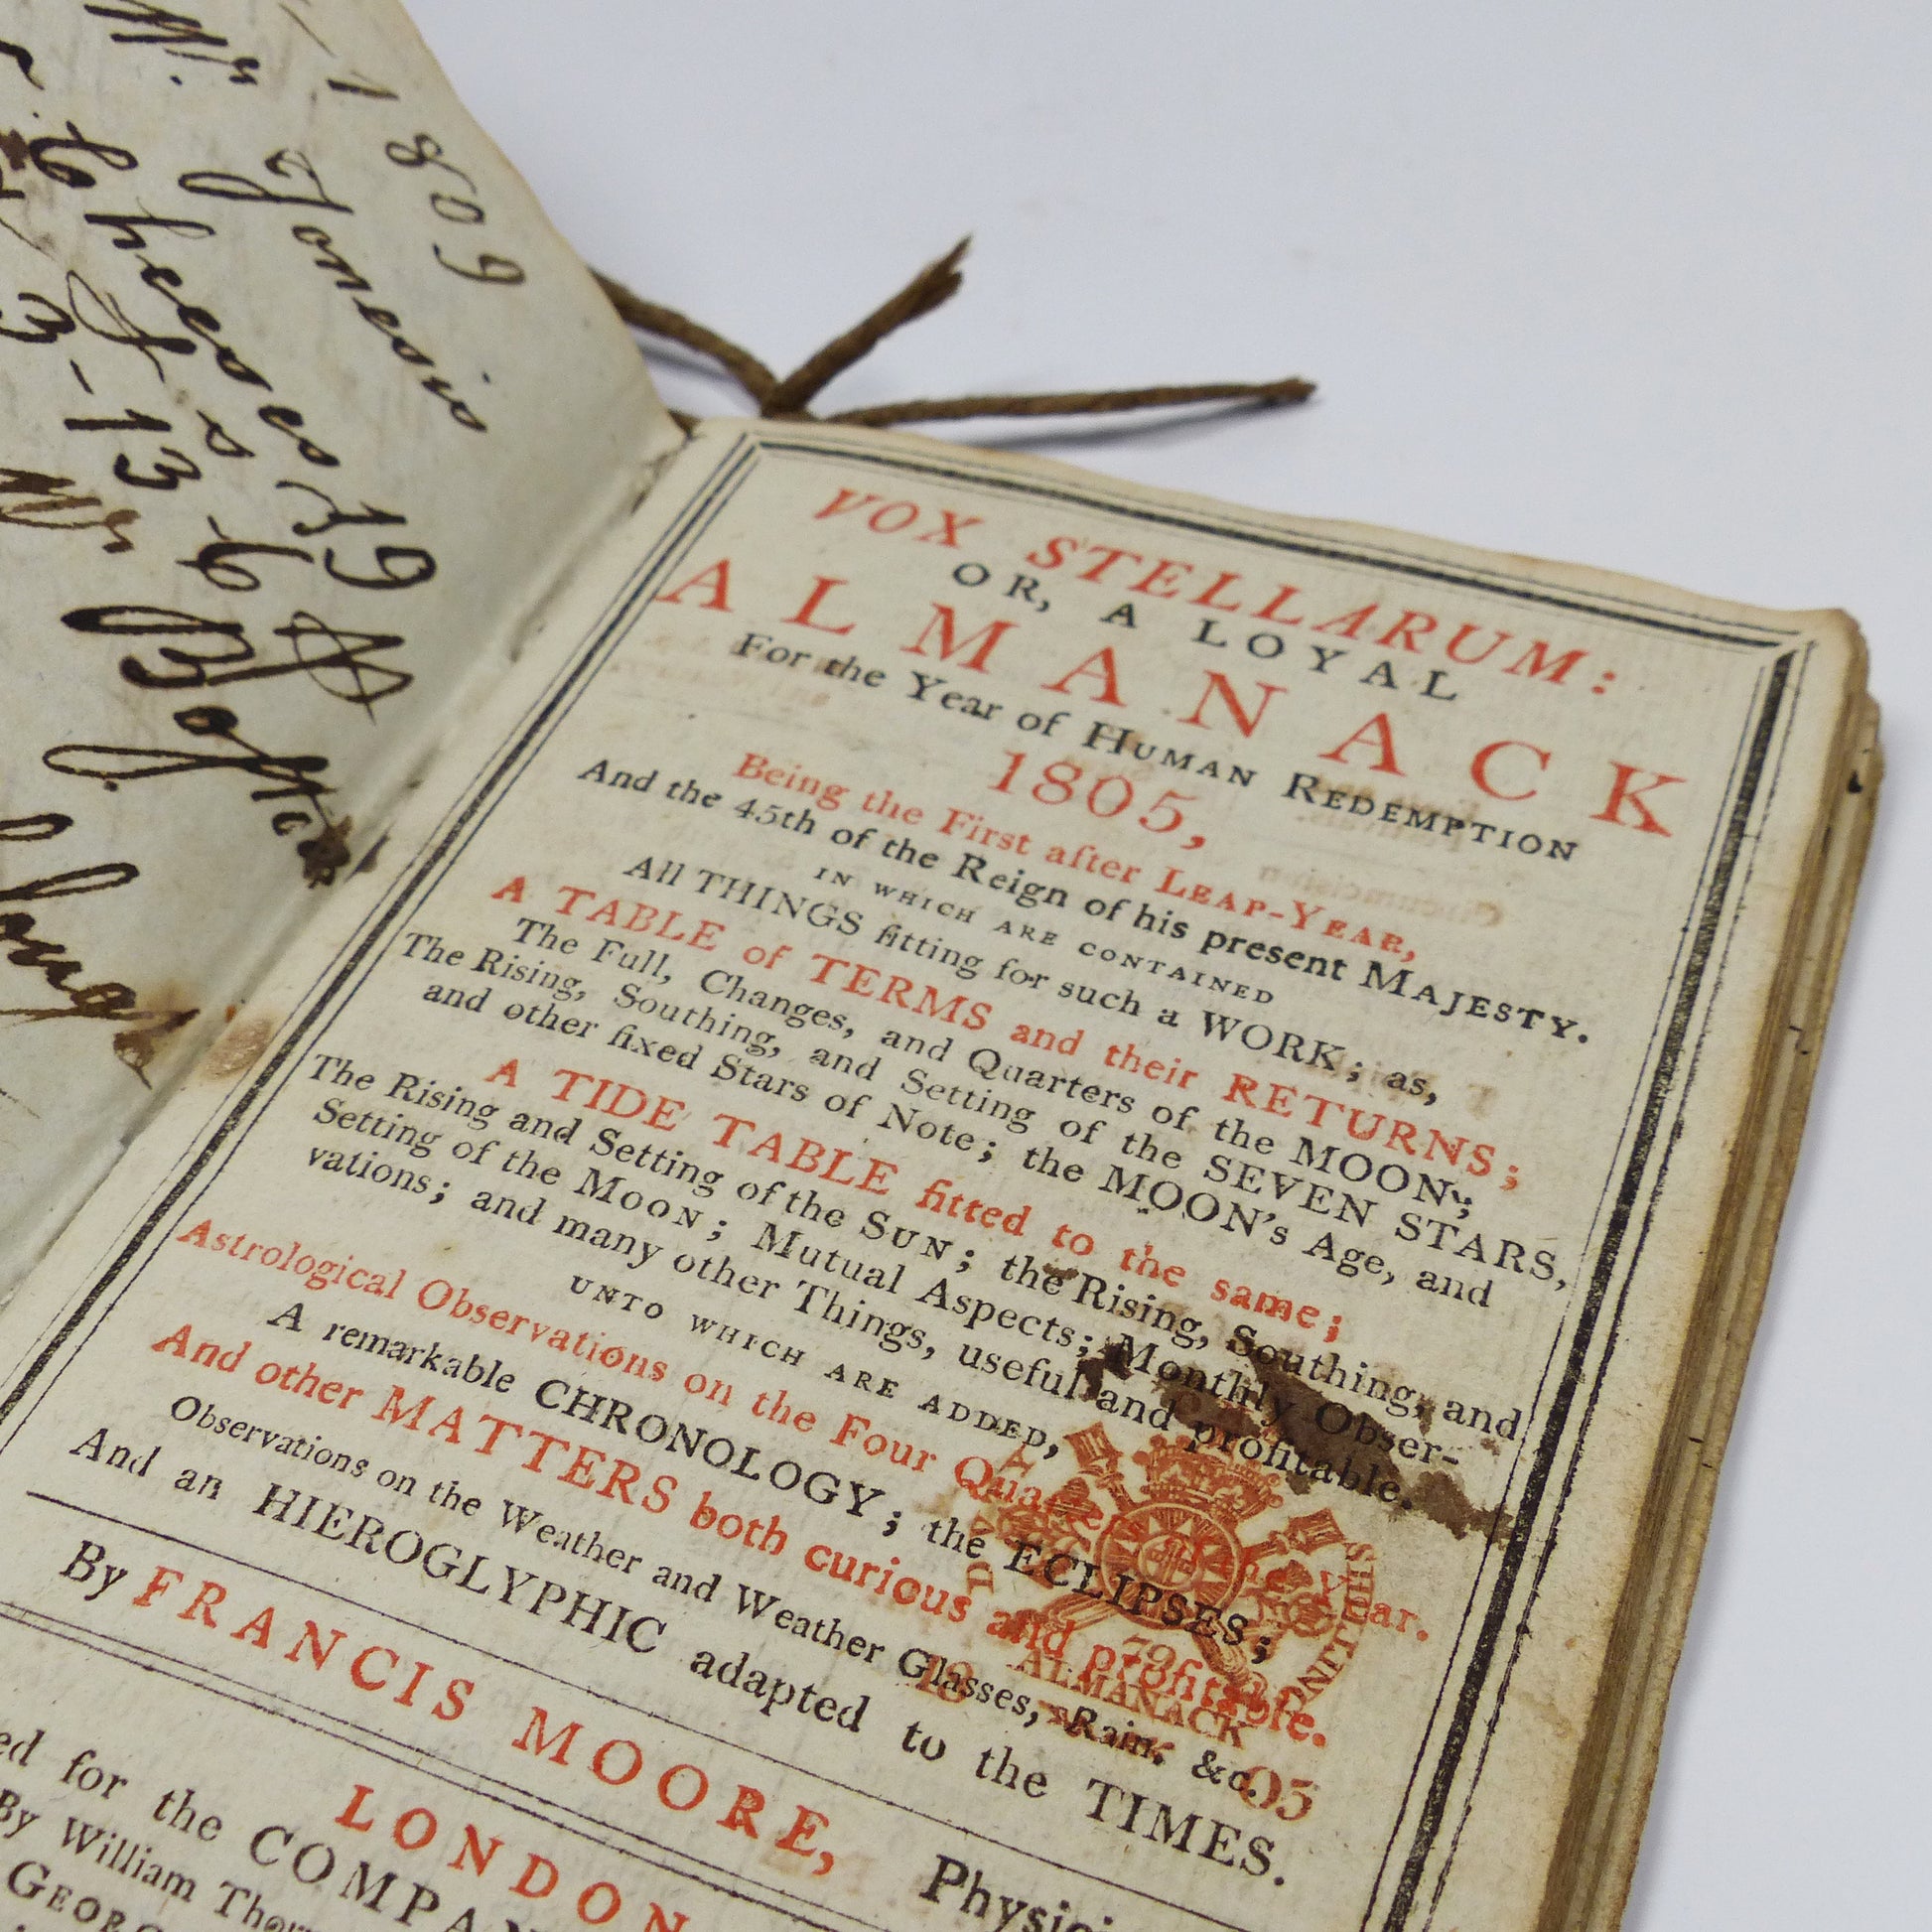 1809
Mr Jonesis
Cheeses 19
3-13-6
Mr
VOX STELLARUM:
OR, A LOYAL
ALMANACK
For the Year of HUMAN REDEMPTION
1805,
Being the First after LEAP-YEAR,
And the 45th of the Reign of his present MAJESTY.
IN WHICH ARE CONTAINED
All THINGS fitting for such a WORK; as,
A TABLE of TERMS and their RETURNS;
The Full, Changes, and Quarters of the MOON;
The Rising, Southing, and Setting of the SEVEN STARS,
and other fixed Stars of Note; the MOON's Age, and
A TIDE TABLE fitted to the same;
The Rising and Setting of the SUN; the Rising, Southing, and
Setting of the MOON; Mutual Aspects; Monthly Obser-
vations; and many other Things, useful and profitable.
UNTO WHICH ARE ADDED,
Astrological Observations on the Four Quarters of the Year.
A remarkable CHRONOLOGY; the ECLIPSES;
And other MATTERS both curious and profitable.
Observations on the Weather and Weather Glasses, Rain, &c.
And an HIEROGLYPHIC adapted to the TIMES.
ALMANACK
18 05
By FRANCIS MOORE, Physici
LONDON
ed for the COMPAN
By William Thor
GEORG